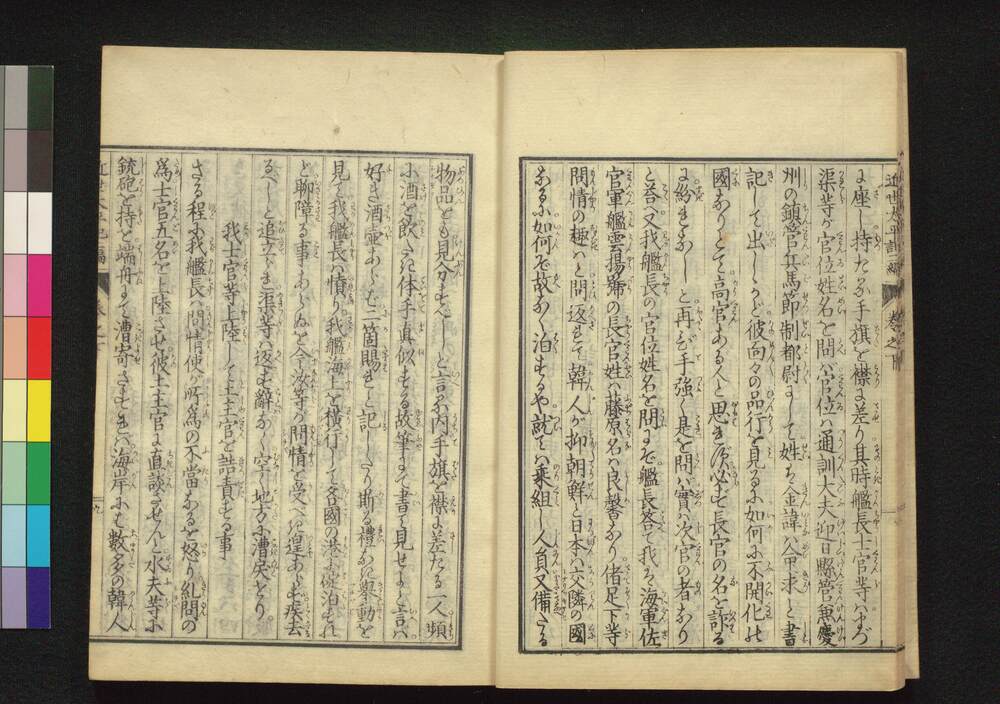 近世太平記二編 巻之下
に座し持たる手旗を襟に差り其時艦長士官等ハまづ
渠等が官位姓名を問バ官位ハ通訓大夫迎日縣管魚慶
州の鎮管兵馬節制都尉にして姓ハ金諱ハ甲求と書
記して出しかど彼面々の品行を見るに如何に不開化の
國なりとて高官ある人と思ぎれバ必ず長官の名を詐る
に紛れなしと再び手強く是を問バ實ハ次官の者なり
と荅へ又我艦長の官位姓名を問にぞ艦長荅て我ハ海軍佐
官軍艦雲揚號の長官姓ハ藤原名ハ良馨なり偖足下等
問情の趣ハと問返せバ韓人が抑朝鮮と日本ハ交隣の國
なるに如何ぞ故なく泊するや就てハ乗組し人員又備たる
物品をも見分すべしと言ふ内手旗を襟に差たる一人頻
に酒を飲たき体手真似する故筆にて書を見せよと言バ
好き酒壷あらバ二箇賜れと記したり斯る禮なき挙動を
見て我艦長ハ憤り我艦海上を横行して各國の港に碇泊すれ
ど聊障る事あらぬを今汝等が問情を受べき遑あらず疾去
るべしと追立れバ渠等ハ返す辭なく空く地方に漕戻せり
我士官等上陸して土官を詰責する事
さる程に我艦長ハ問情使が所爲の不當なるを怒り糺問の
爲士官五名を上陸させ彼土官に直談させんと水夫等に
銃砲を持せ端舟にて漕寄さするにハ海岸にも數多の韓人
近世太平記二編 巻之下 九